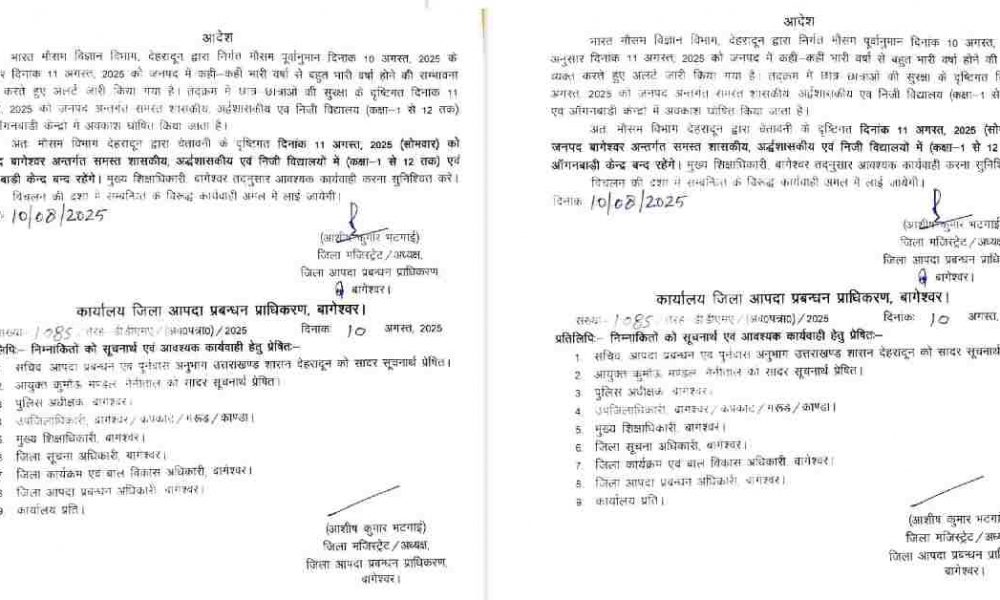 आदेश
भारत मौसम विज्ञान विभाग, देहरादून द्वारा निर्गत मौसम पूर्वानुमान दिनांक 10 अगस्त, 2025 के
र दिनांक 11 अगस्त, 2025 को जनपद में कहीं-कहीं भारी वर्षा से बहुत भारी वर्षा होने की सम्भावना
करते हुए अलर्ट जारी किया गया है। तद्क्रम में छात्र छात्राओं की सुरक्षा के दृष्टिगत दिनांक 11
, 2025 को जनपद अन्तर्गत समस्त शासकीय, अर्द्धशासकीय एवं निजी विद्यालयों (कक्षा-1 से 12 तक)
ऑगनबाडी केन्द्रों में अवकाश घोषित किया जाता है।
अतः मौसम विभाग देहरादून द्वारा चेतावनी के दृष्टिगत दिनांक 11 अगस्त, 2025 (सोमवार) को
बागेश्वर अन्तर्गत समस्त शासकीय, अर्द्धशासकीय एवं निजी विद्यालयों में (कक्षा-1 से 12 तक) एवं
बाड़ी केन्द्र बन्द रहेंगे। मुख्य शिक्षाधिकारी, बागेश्वर तद्नुसार आवश्यक कार्यवाही करना सुनिश्चित करें।
विचलन की दशा में सम्बन्धित के विरूद्ध कार्यवाही अमल में लाई जायेगी।
10/08/2025
(आशीष कुमार भटगाई)
जिला मजिस्ट्रेट/अध्यक्ष,
जिला आपदा प्रबन्धन प्राधिकरण
बागेश्वर।
कार्यालय जिला आपदा प्रबन्धन प्राधिकरण, बागेश्वर।
1085 /तेरह-डीडीएमए/(अ0प0प्रा0)/2025 दिनांक: 10 अगस्त, 2025
लिपि:- निम्नांकितों को सूचनार्थ एवं आवश्यक कार्यवाही हेतु प्रेषित:-
सचिव आपदा प्रबन्धन एवं पुर्नवास अनुभाग उत्तराखण्ड शासन देहरादून को सादर सूचनार्थ प्रेषित।
2 आयुक्त कुमॉऊ मण्डल नैनीताल को सादर सूचनार्थ प्रेषित।
पुलिस अधीक्षक, बागेश्वर।
उपजिलाधिकारी, बागेश्वर/कपकोट/गरूड/काण्डा।
मुख्य शिक्षाधिकारी, बागेश्वर।
जिला सूचना अधिकारी, बागेश्वर।
जिला कार्यक्रम एवं बाल विकास अधिकारी, बागेश्वर।
जिला आपदा प्रबन्धन अधिकारी, बागेश्वर।
9 कार्यालय प्रति।
(आशीष कुमार भटगाई)
जिला मजिस्ट्रेट/अध्यक्ष,
जिला आपदा प्रबन्धन प्राधिकरण,
बागेश्वर।
आदेश
भारत मौसम विज्ञान विभाग, देहरादून द्वारा निर्गत मौसम पूर्वानुमान दिनांक 10 अगस्त,
अनुसार दिनांक 11 अगस्त, 2025 को जनपद में कहीं-कहीं भारी वर्षा से बहुत भारी वर्षा होने की
व्यक्त करते हुए अलर्ट जारी किया गया है। तद्क्रम में छात्र छात्राओं की सुरक्षा के दृष्टिगत
अगस्त, 2025 को जनपद अन्तर्गत समस्त शासकीय, अर्द्धशासकीय एवं निजी विद्यालयों (कक्षा-1
एवं ऑगनबाडी केन्द्रों में अवकाश घोषित किया जाता है।
अतः मौसम विभाग देहरादून द्वारा चेतावनी के दृष्टिगत दिनांक 11 अगस्त, 2025
जनपद बागेश्वर अन्तर्गत समस्त शासकीय, अर्द्धशासकीय एवं निजी विद्यालयों में (कक्षा-1 से 12
ऑगनबाड़ी केन्द्र बन्द रहेंगे। मुख्य शिक्षाधिकारी, बागेश्वर तद्नुसार आवश्यक कार्यवाही करना
विचलन की दशा में सम्बन्धित के विरूद्ध कार्यवाही अमल में लाई जायेगी।
दिनांक 10/08/2025
(आशीष कुमार भटगाई
जिला मजिस्ट्रेट/अध्यक्ष
जिला आपदा प्रबन्धन
बागेश्वर।
कार्यालय जिला आपदा प्रबन्धन प्राधिकरण, बागेश्वर।
संख्या:- 1085 /तेरह-डीडीएमए/(अ0प0प्रा0)/2025 दिनांक: 10 अगस्त,
प्रतिलिपि:- निम्नांकितों को सूचनार्थ एवं आवश्यक कार्यवाही हेतु प्रेषित:-
1. सचिव, आपदा प्रबन्धन एवं पुर्नवास अनुभाग उत्तराखण्ड शासन देहरादून को सादर
2. आयुक्त कुमॉऊ मण्डल नैनीताल को सादर सूचनार्थ प्रेषित।
3. पुलिस अधीक्षक, बागेश्वर।
4. उपजिलाधिकारी, बागेश्वर/कपकोट/गरूड/काण्डा।
5. मुख्य शिक्षाधिकारी, बागेश्वर।
6. जिला सूचना अधिकारी, बागेश्वर।
7. जिला कार्यक्रम एवं बाल विकास अधिकारी, बागेश्वर।
8. जिला आपदा प्रबन्धन अधिकारी, बागेश्वर।
9. कार्यालय प्रति।
(आशीष कुमार भटगाई
जिला मजिस्ट्रेट/अध्यक्ष
जिला आपदा प्रबन्धन
बागेश्वर।